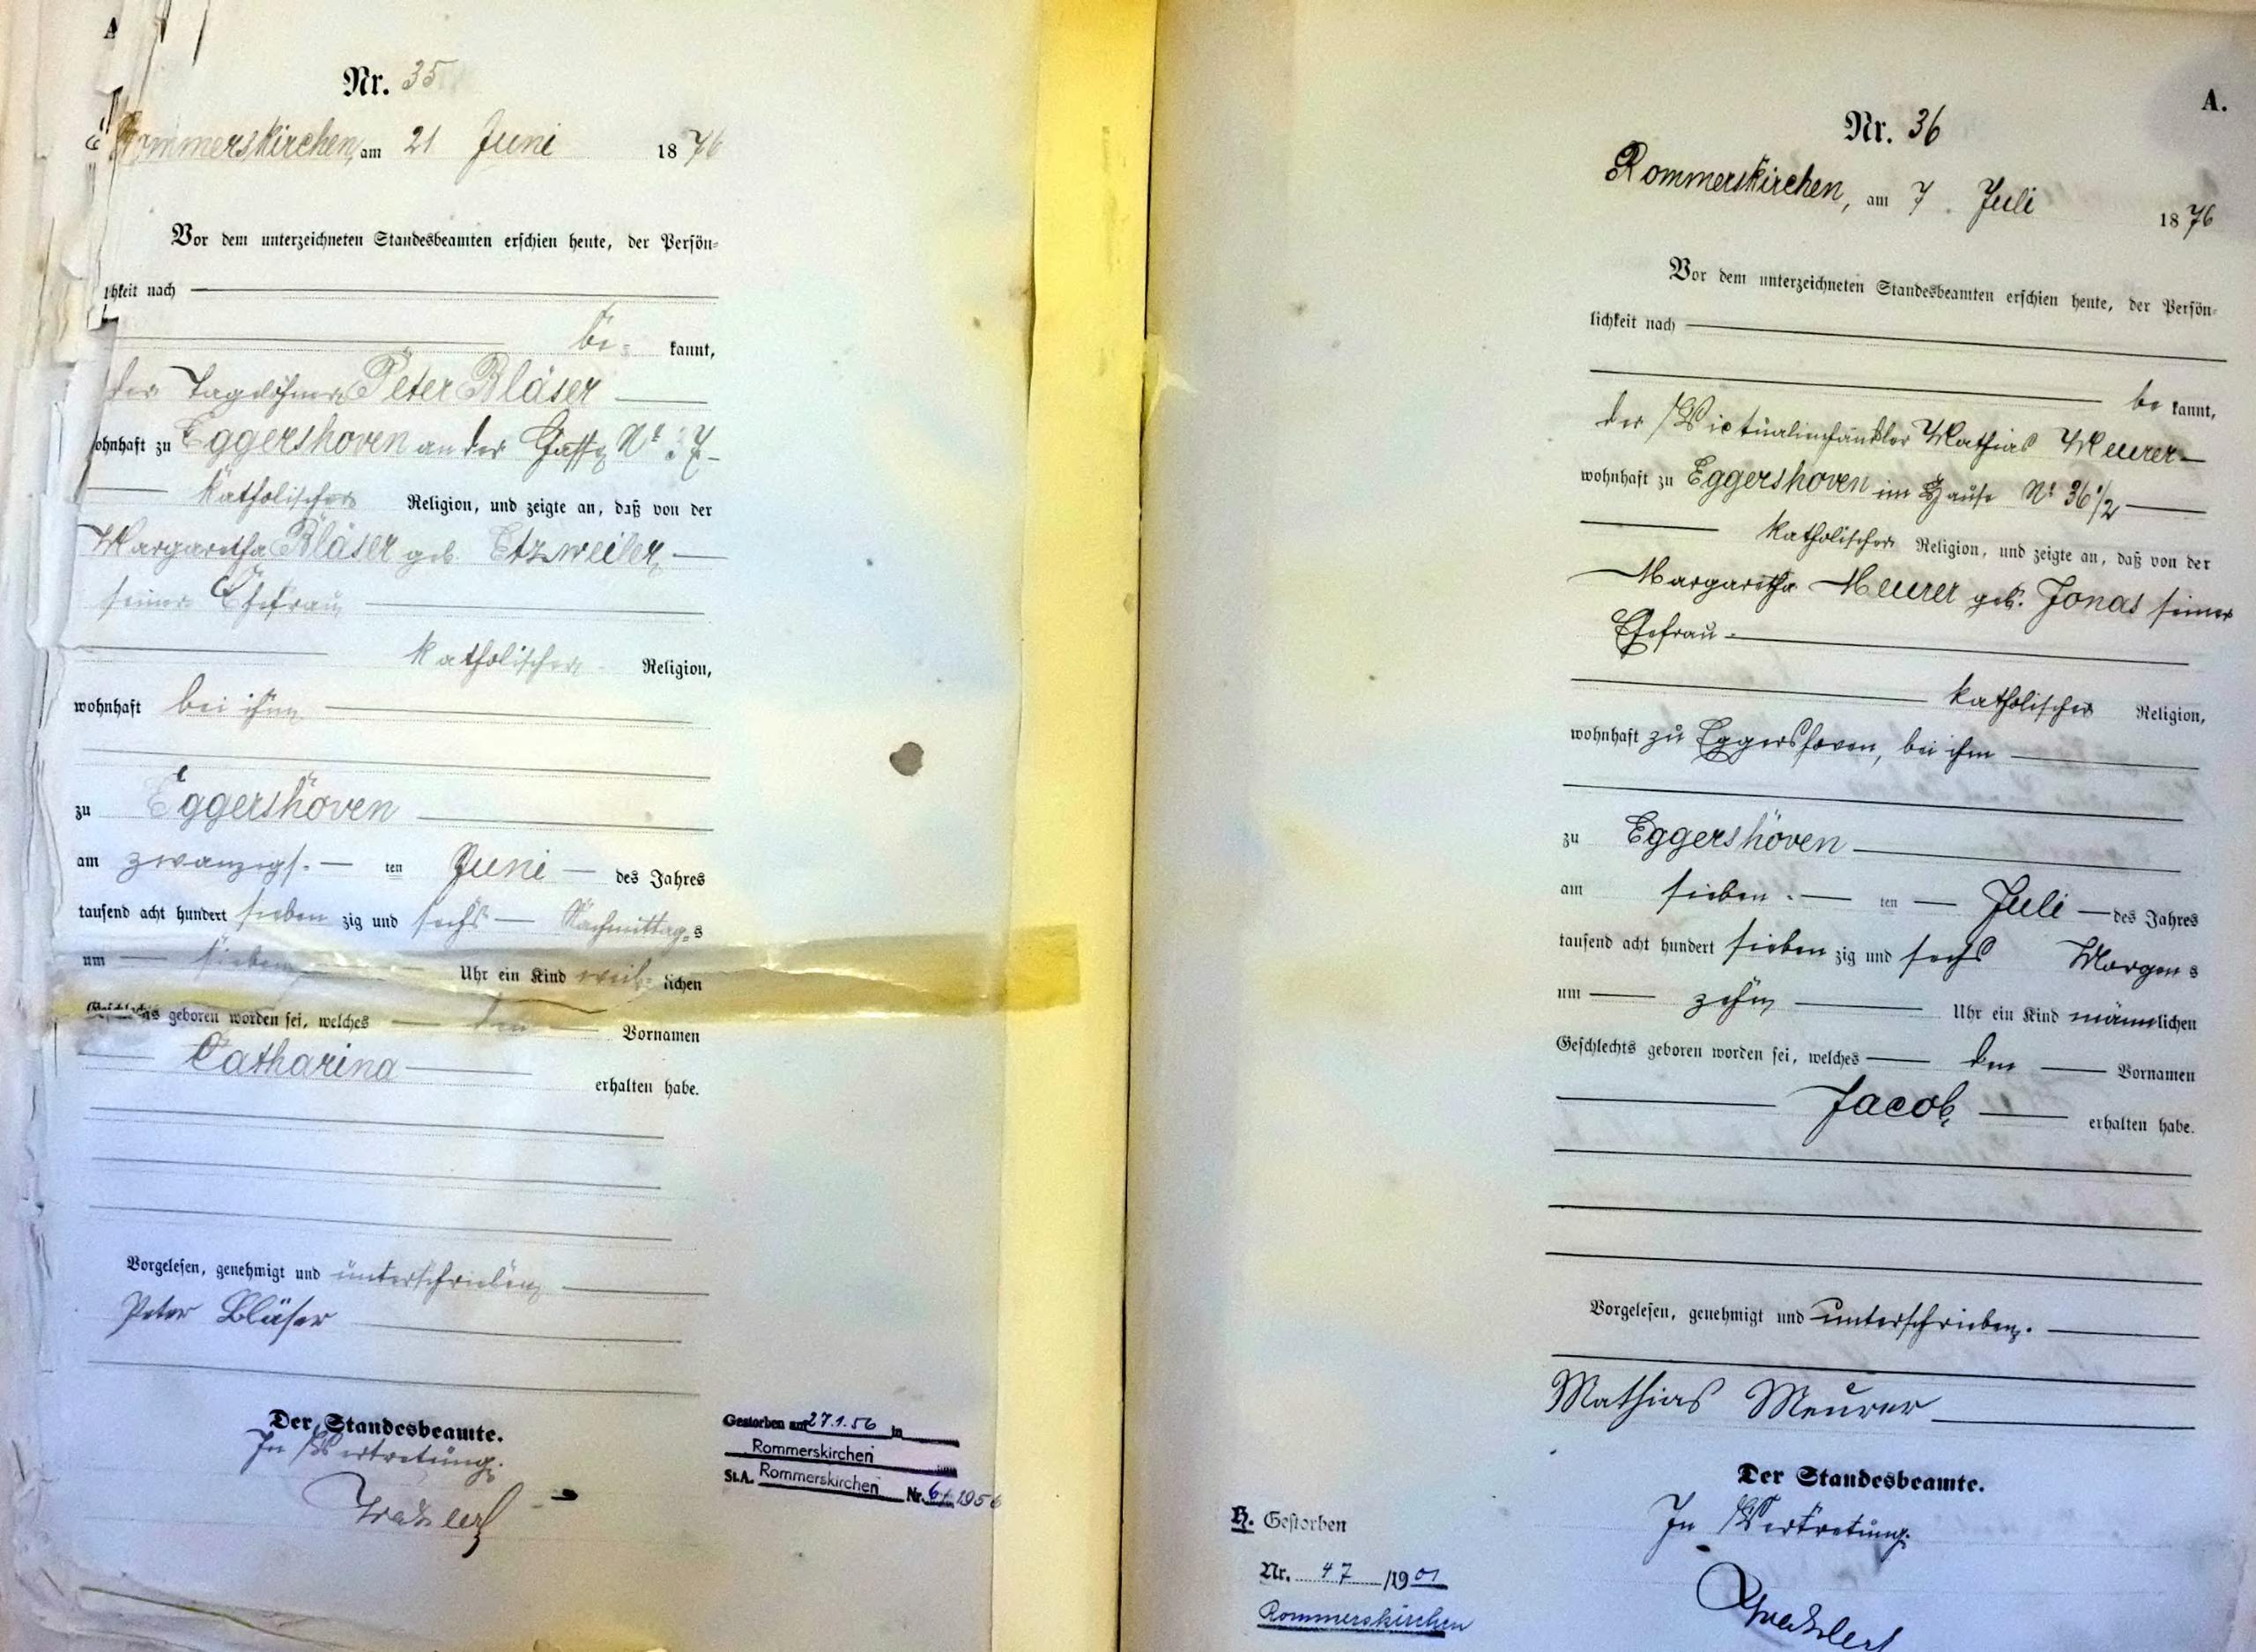 A
Nr. 35
Rommerskirchen, am 21 Juni 1876
Vor dem unterzeichneten Standesbeamten erschien heute, der Persön-
lichkeit nach
be- kannt,
der Tagelöhner Peter Bläser
wohnhaft zu Eggershoven an der Gasse Nr
katholischer Religion, und zeigte an, daß von der
Margaretha Bläser geb. Etzweiler,
seiner Ehefrau
katholischer Religion,
wohnhaft bei ihm
zu Eggershoven
am zwanzigs.- ten Juni des Jahres
tausend acht hundert sieben zig und sechs Nachmittags
um sieben Uhr ein Kind weib- lichen
Geschlechts geboren worden sei, welches den Vornamen
Catharina erhalten habe.
Vorgelesen, genehmigt und unterschrieben
Peter Bläser
Der Standesbeamte.
In Vertretung.
Gestorben am 27.1.56 in
Rommerskirchen
St.A. Rommerskirchen Nr. 6/1956
A.
Nr. 36
Rommerskirchen, am 7. Juli 1876
Vor dem unterzeichneten Standesbeamten erschien heute, der Persön-
lichkeit nach
be kannt,
der Victualienhändler Mathias Meurer
wohnhaft zu Eggershoven im Hause Nr 36 1/2
katholischer Religion, und zeigte an, daß von der
Margaretha Meurer geb. Jonas seiner
Ehefrau
katholischer Religion,
wohnhaft zu Eggershoven, bei ihm
zu Eggershoven
am sieben.- ten Juli des Jahres
tausend acht hundert sieben zig und sechs Morgens
um zehn Uhr ein Kind männlichen
Geschlechts geboren worden sei, welches den Vornamen
Jacob, erhalten habe.
Vorgelesen, genehmigt und unterschrieben.
Mathias Meurer
Der Standesbeamte.
In Vertretung.
H. Gestorben
Nr. 47 /1901
Rommerskirchen